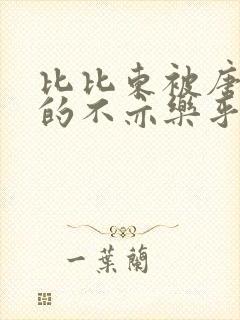 比比东被唐
的不亦樂乎
一葉蘭